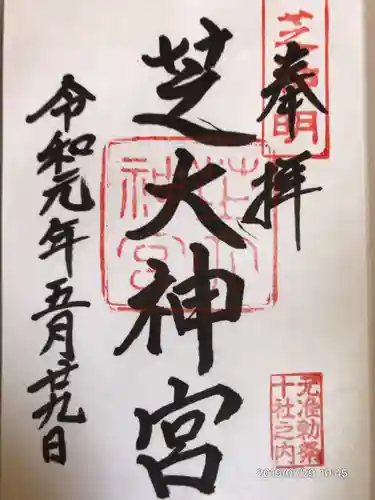 芝神明
奉拝
芝大神宮
芝大
神宮
元准勅祭
十社之内
令和元年五月廿九日
10:45